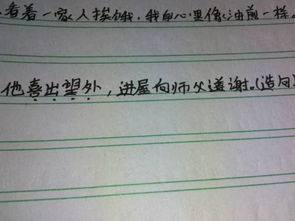 看着一家人挨饿,我的心里像油煎一样。
他喜出望外,进屋向师父道谢。(造句